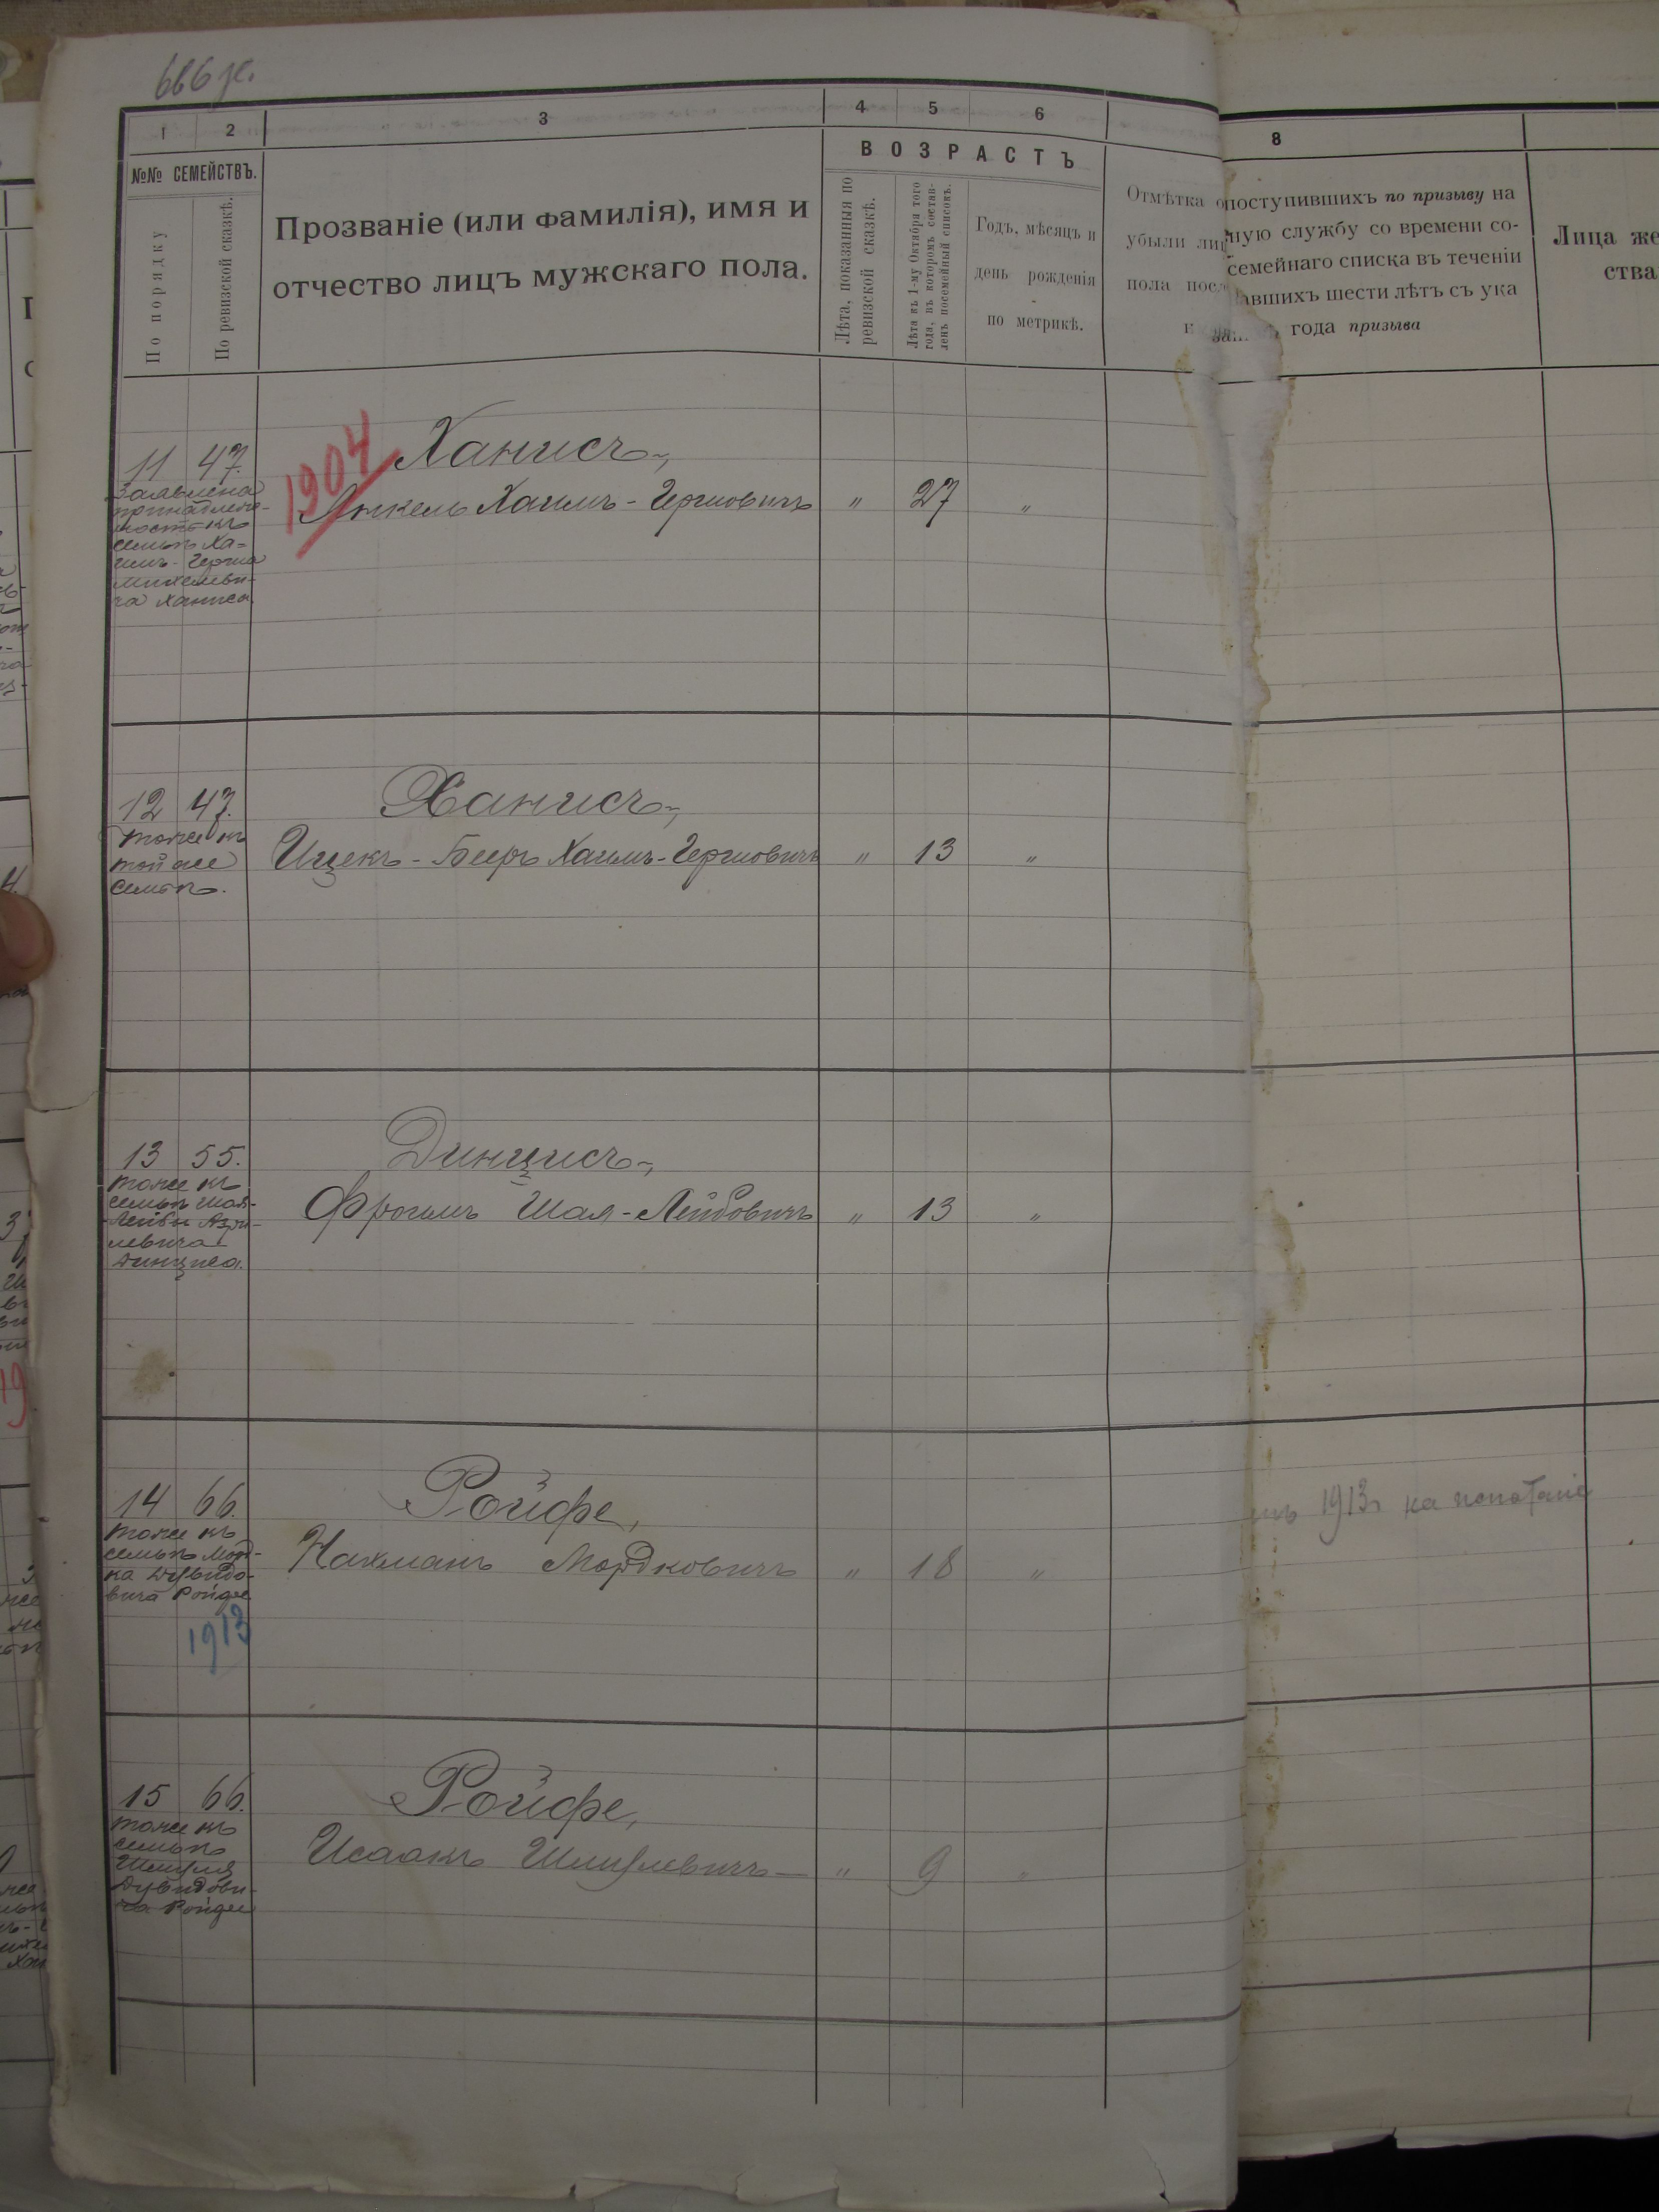 1
2
3
4
5
6
8
№№ СЕМЕЙСТВЪ.
По порядку
По ревизской сказкѣ.
Прозваніе (или фамилія), имя и
отчество лицъ мужскаго пола.
ВОЗРАСТЪ
Лѣта, показанныя по
ревизской сказкѣ.
Лѣта къ 1-му Октября того
года, въ которомъ состав-
ленъ посемейный списокъ.
Годъ, мѣсяцъ и
день рожденія
по метрикѣ.
Отмѣтка о
убыли лиц
пола посл
поступившихъ по призыву на
ную службу со времени со-
семейнаго списка въ теченіи
авшихъ шести лѣтъ съ ука
года призыва
Лица же
ства
11 47.
Заявлена
принадлеж-
ность къ
семьѣ Ха-
имъ-Герша
Михелеви-
ча Ханиса.
1904
Ханисъ,
Янкель Хаимъ-Гершовичъ " 27 "
12 47.
тоже къ
той же
семьѣ.
Ханисъ,
Ицекъ-Беръ Хаимъ-Гершовичъ " 13 "
13 55.
тоже къ
семьѣ Шая-
Лейбы Азри-
левича
Динциса.
Динцисъ,
Фроимъ Шая-Лейбовичъ " 13 "
14 66.
тоже къ
семьѣ Морд-
ка Дувидо-
вича Ройфе
1913
Ройфе,
Нахманъ Мордковичъ " 18 "
1913 г на испытаніе
15 66.
тоже къ
семьѣ
Шмуля
Дувидови-
ча Ройфе
Ройфе,
Исаакъ Шмулевичъ " 9 "